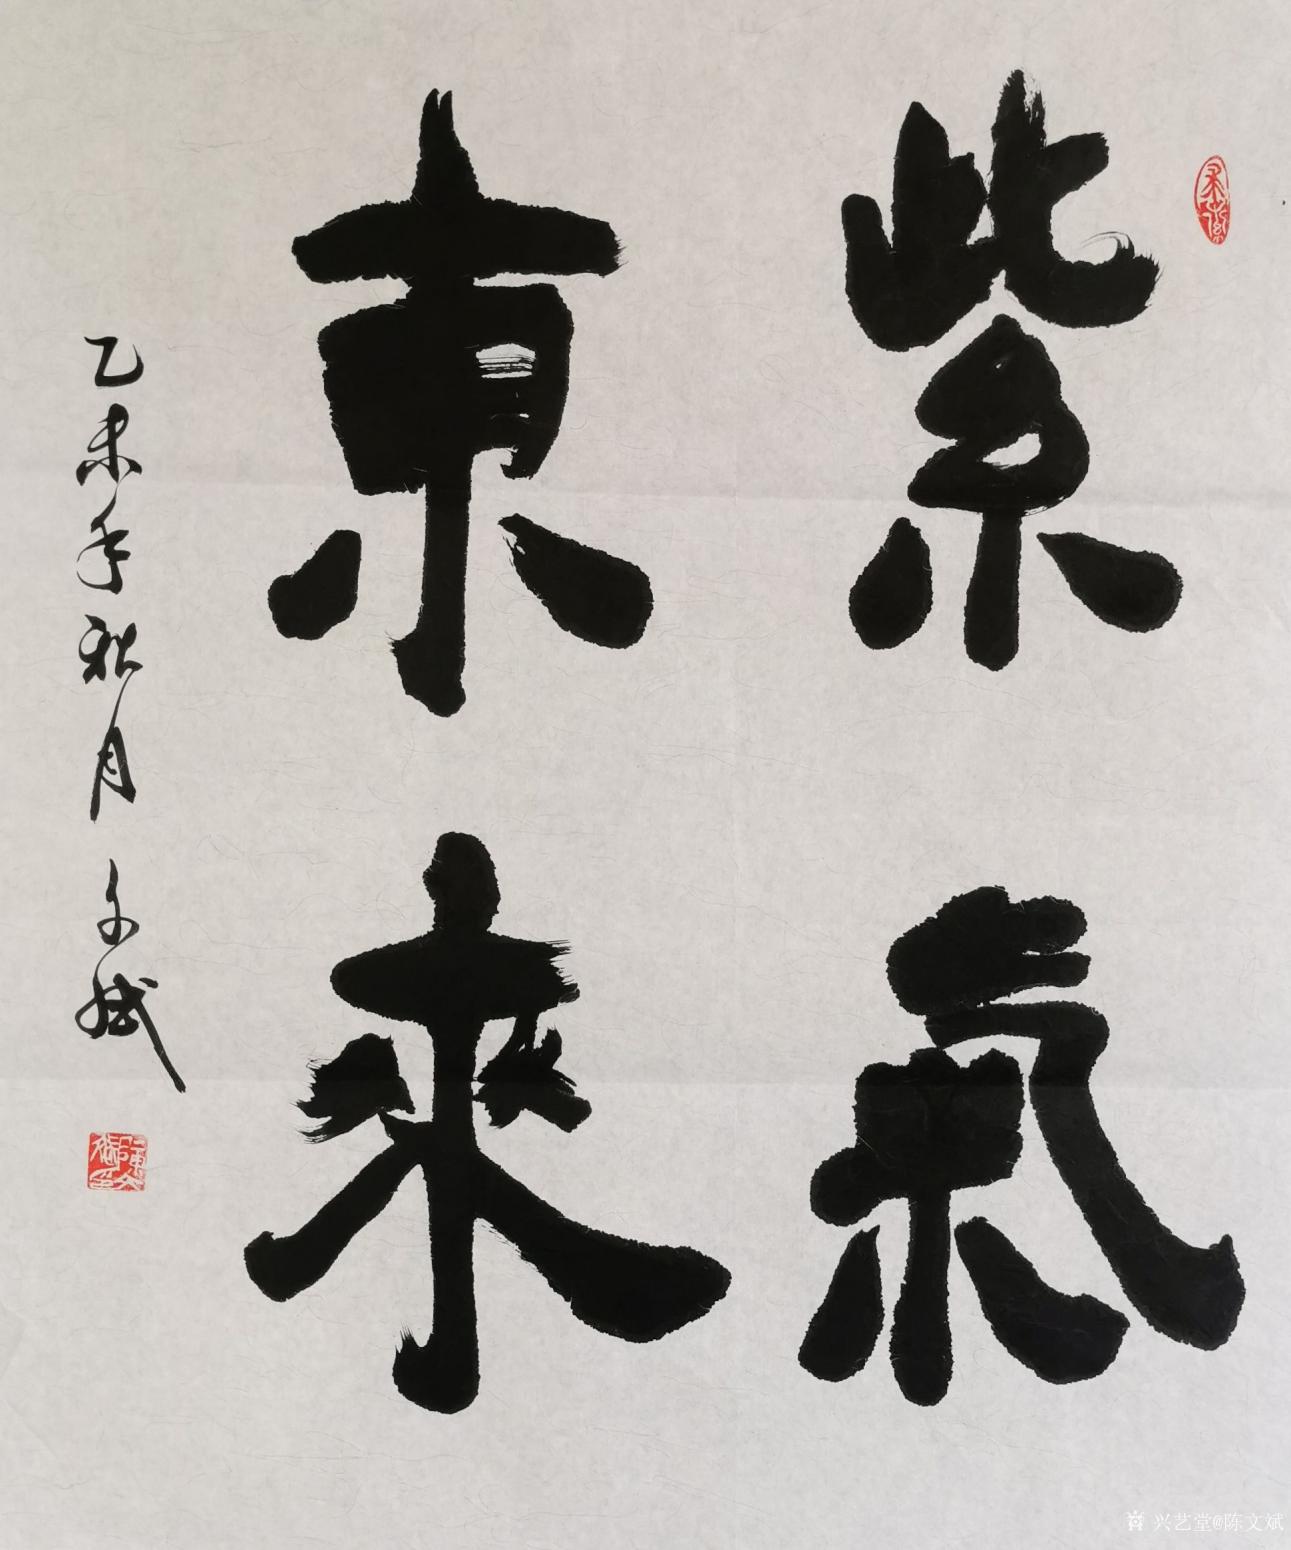 紫氣
東來
乙未年秋月 文斌
陳文斌印
兴艺堂@陈文斌